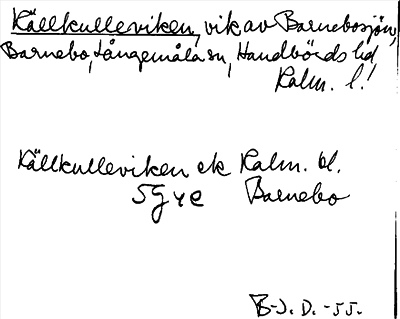 Källkulleviken, vik av Barnebosjön,
Barnebo, Långemåla sn, Handbörds hd
Kalm. l.!
Källkulleviken ek Kalm. bl.
5G4e Barnebo
B-J. D. -55.